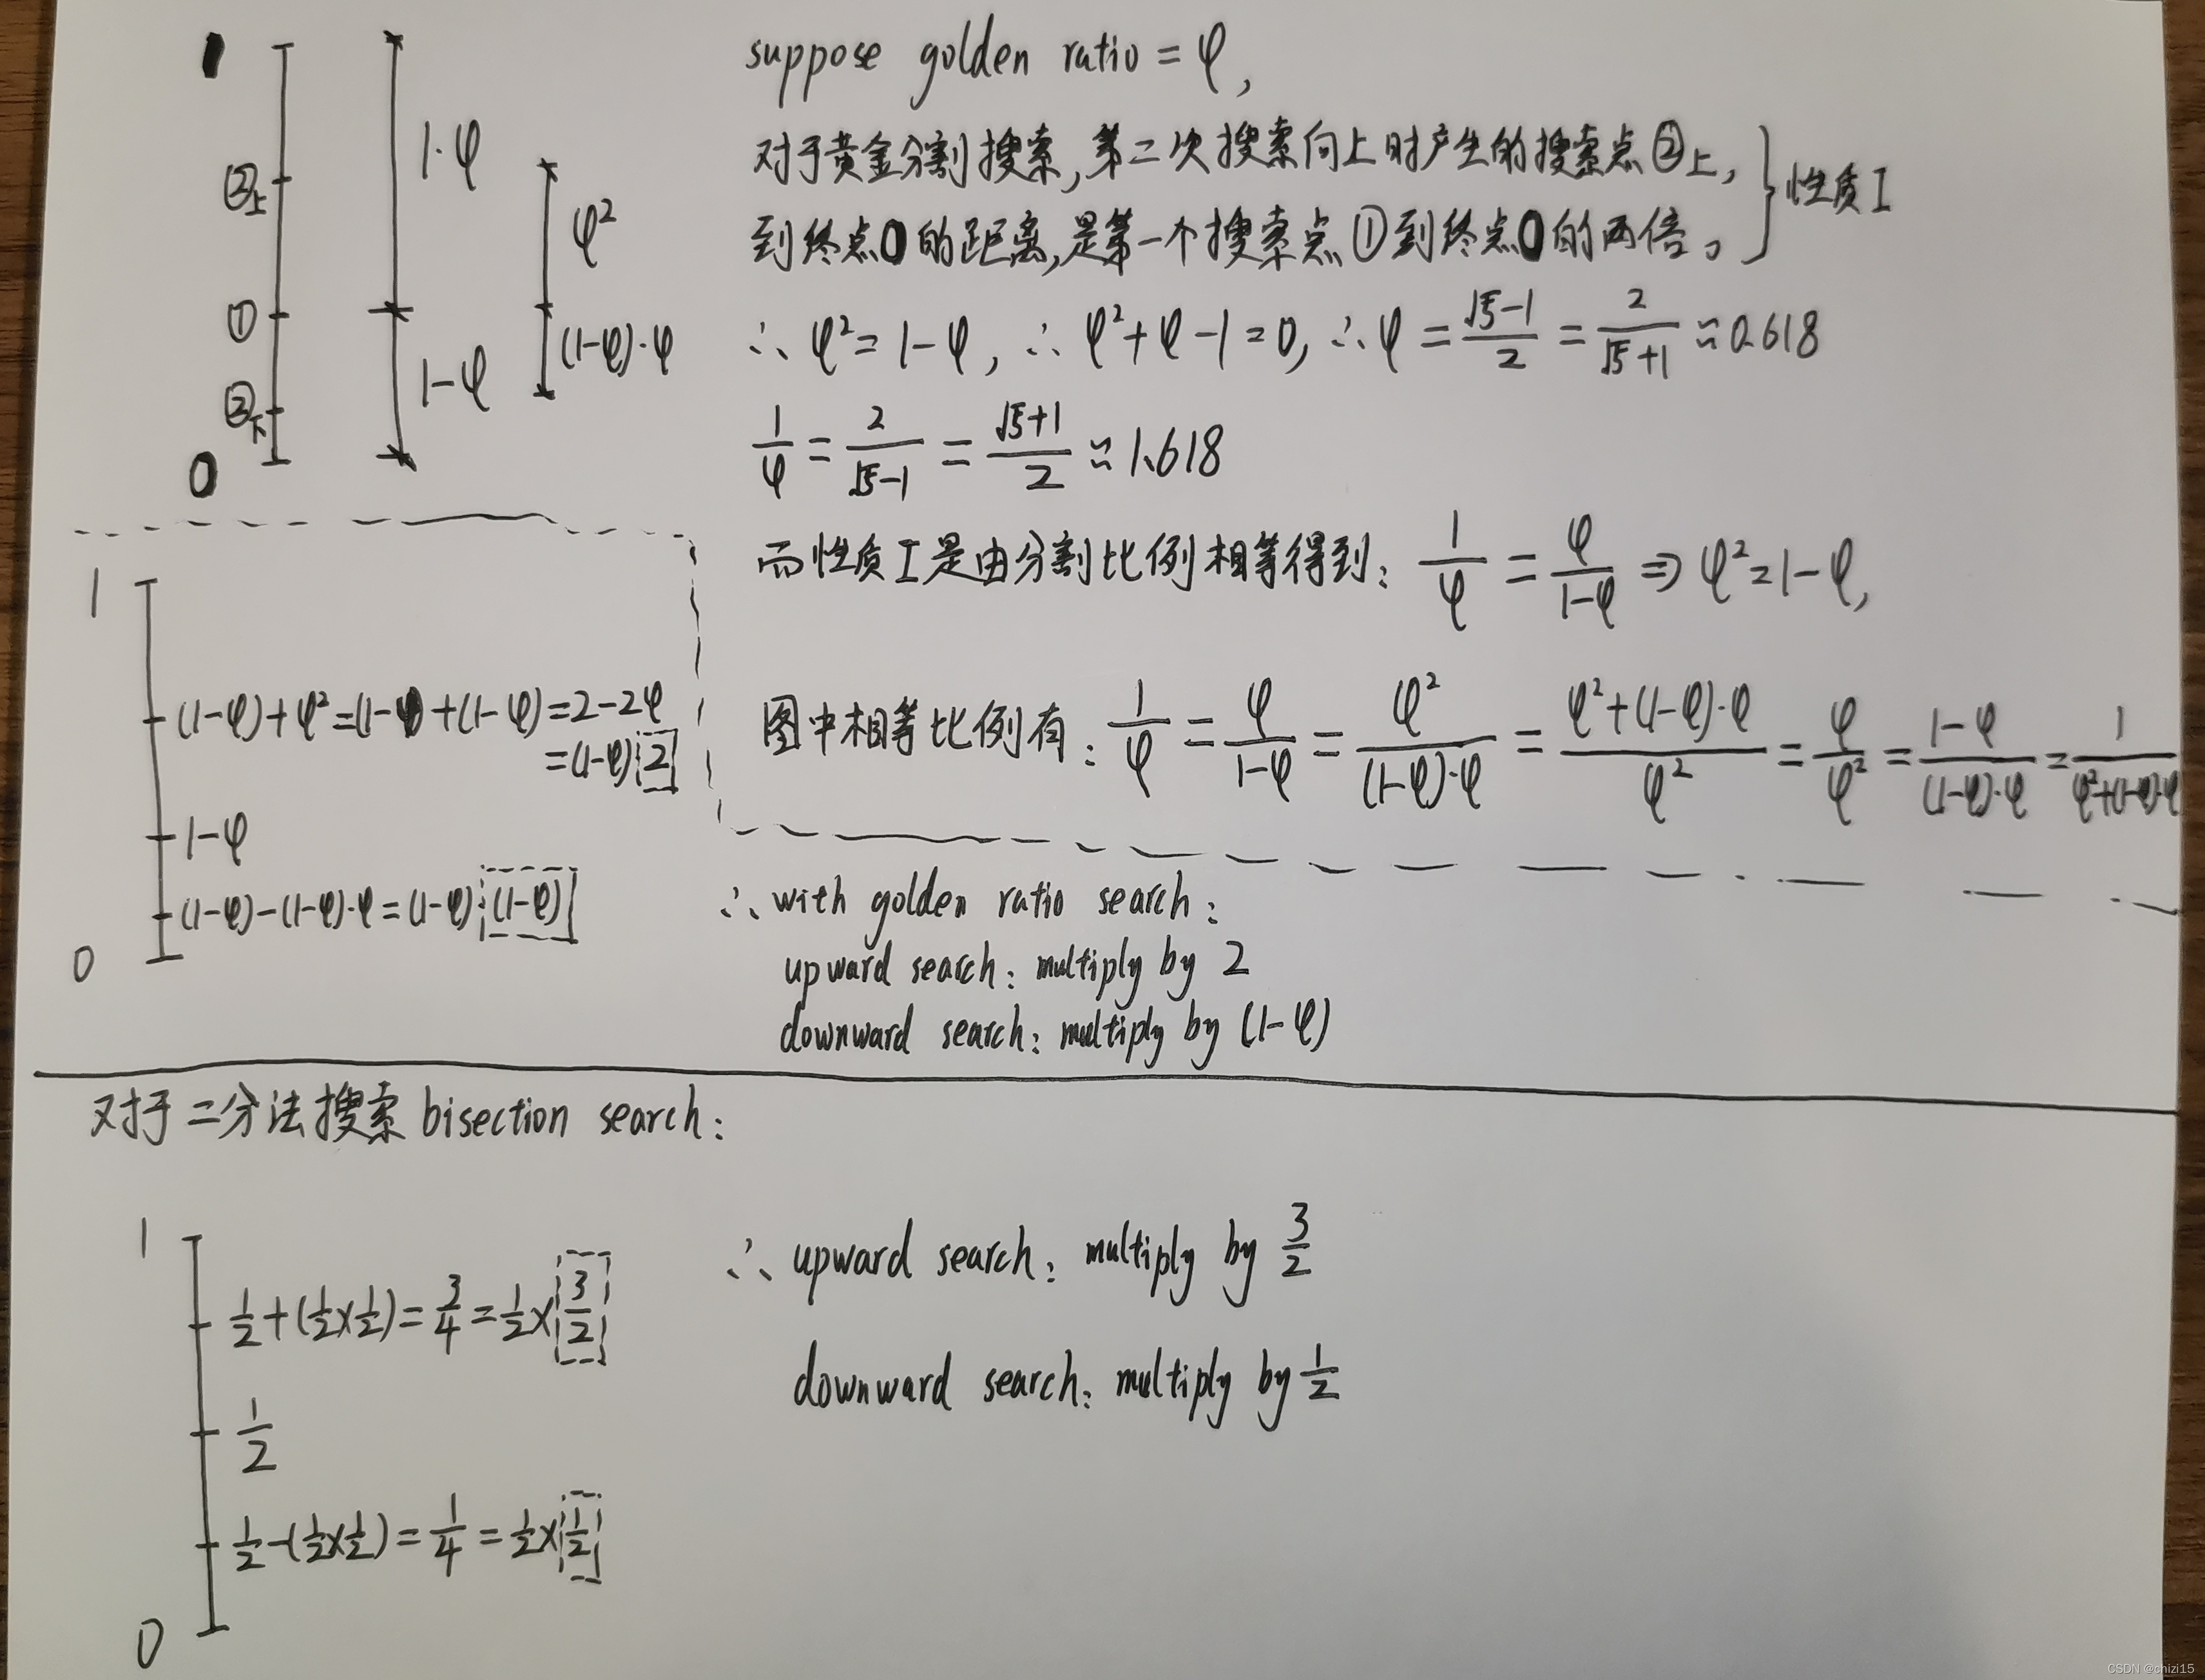 1
②上
①
②下
0
1·φ
1-φ
φ²
(1-φ)·φ
suppose golden ratio = φ,
对于黄金分割搜索,第二次搜索向上时产生的搜索点②上,
到终点0的距离,是第一个搜索点①到终点0的两倍。 } 性质I
∴ φ² = 1-φ, ∴ φ²+φ-1=0, ∴ φ = (√5-1)/2 = 2/(√5+1) ≈ 0.618
1/φ = 2/(√5-1) = (√5+1)/2 ≈ 1.618
而性质I是由分割比例相等得到: 1/φ = φ/(1-φ) ⇒ φ²=1-φ,
图中相等比例有: 1/φ = φ/(1-φ) = φ²/((1-φ)·φ) = (φ²+(1-φ)·φ)/φ² = φ/φ² = (1-φ)/((1-φ)·φ) = 1/(φ²+(1-φ)·φ
1
(1-φ)+φ²=(1-φ+(1-φ)=2-2φ
=(1-φ)2
1-φ
(1-φ)-(1-φ)·φ=(1-φ)(1-φ)
0
∴ with golden ratio search:
upward search: multiply by 2
downward search: multiply by (1-φ)
对于二分法搜索 bisection search:
1
1/2+(1/2×1/2)=3/4=1/2×3/2
1/2
1/2-(1/2×1/2)=1/4=1/2×1/2
0
∴ upward search: multiply by 3/2
downward search: multiply by 1/2
CSDN @chizi15